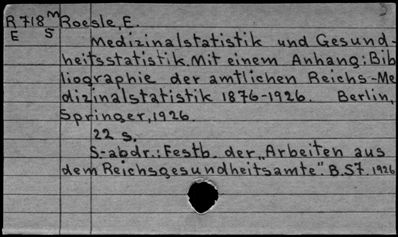 R 718 M Roesle, E.
E S Medizinalstatistik und Gesund-
heitsstatistik. Mit einem Anhang: Bib
liographie der amtlichen Reichs-Me
dizinalstatistik 1876-1926. Berlin,
Springer, 1926.
22 s.
S.-abdr.: Festb. der „Arbeiten aus
dem Reichsgesundheitsamte". B. 57. 1926